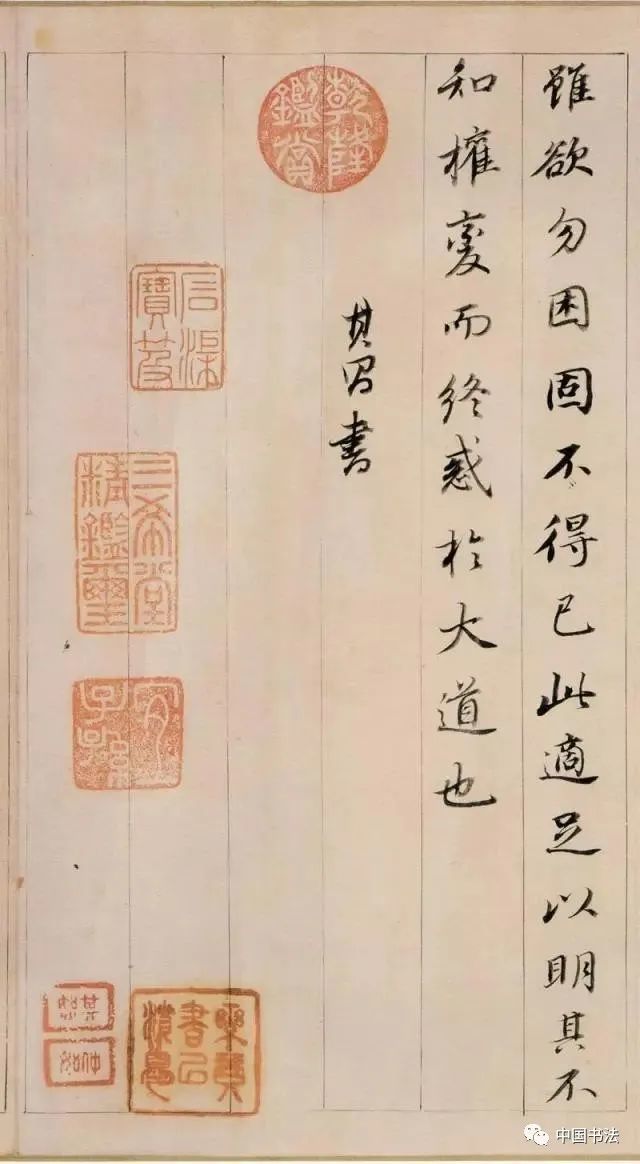 雖欲勿困固不得已此適足以明其不
知權變而終惑於大道也
其昌書
乾隆鑑賞
三希堂精鑑璽
宜子孫
中国书法